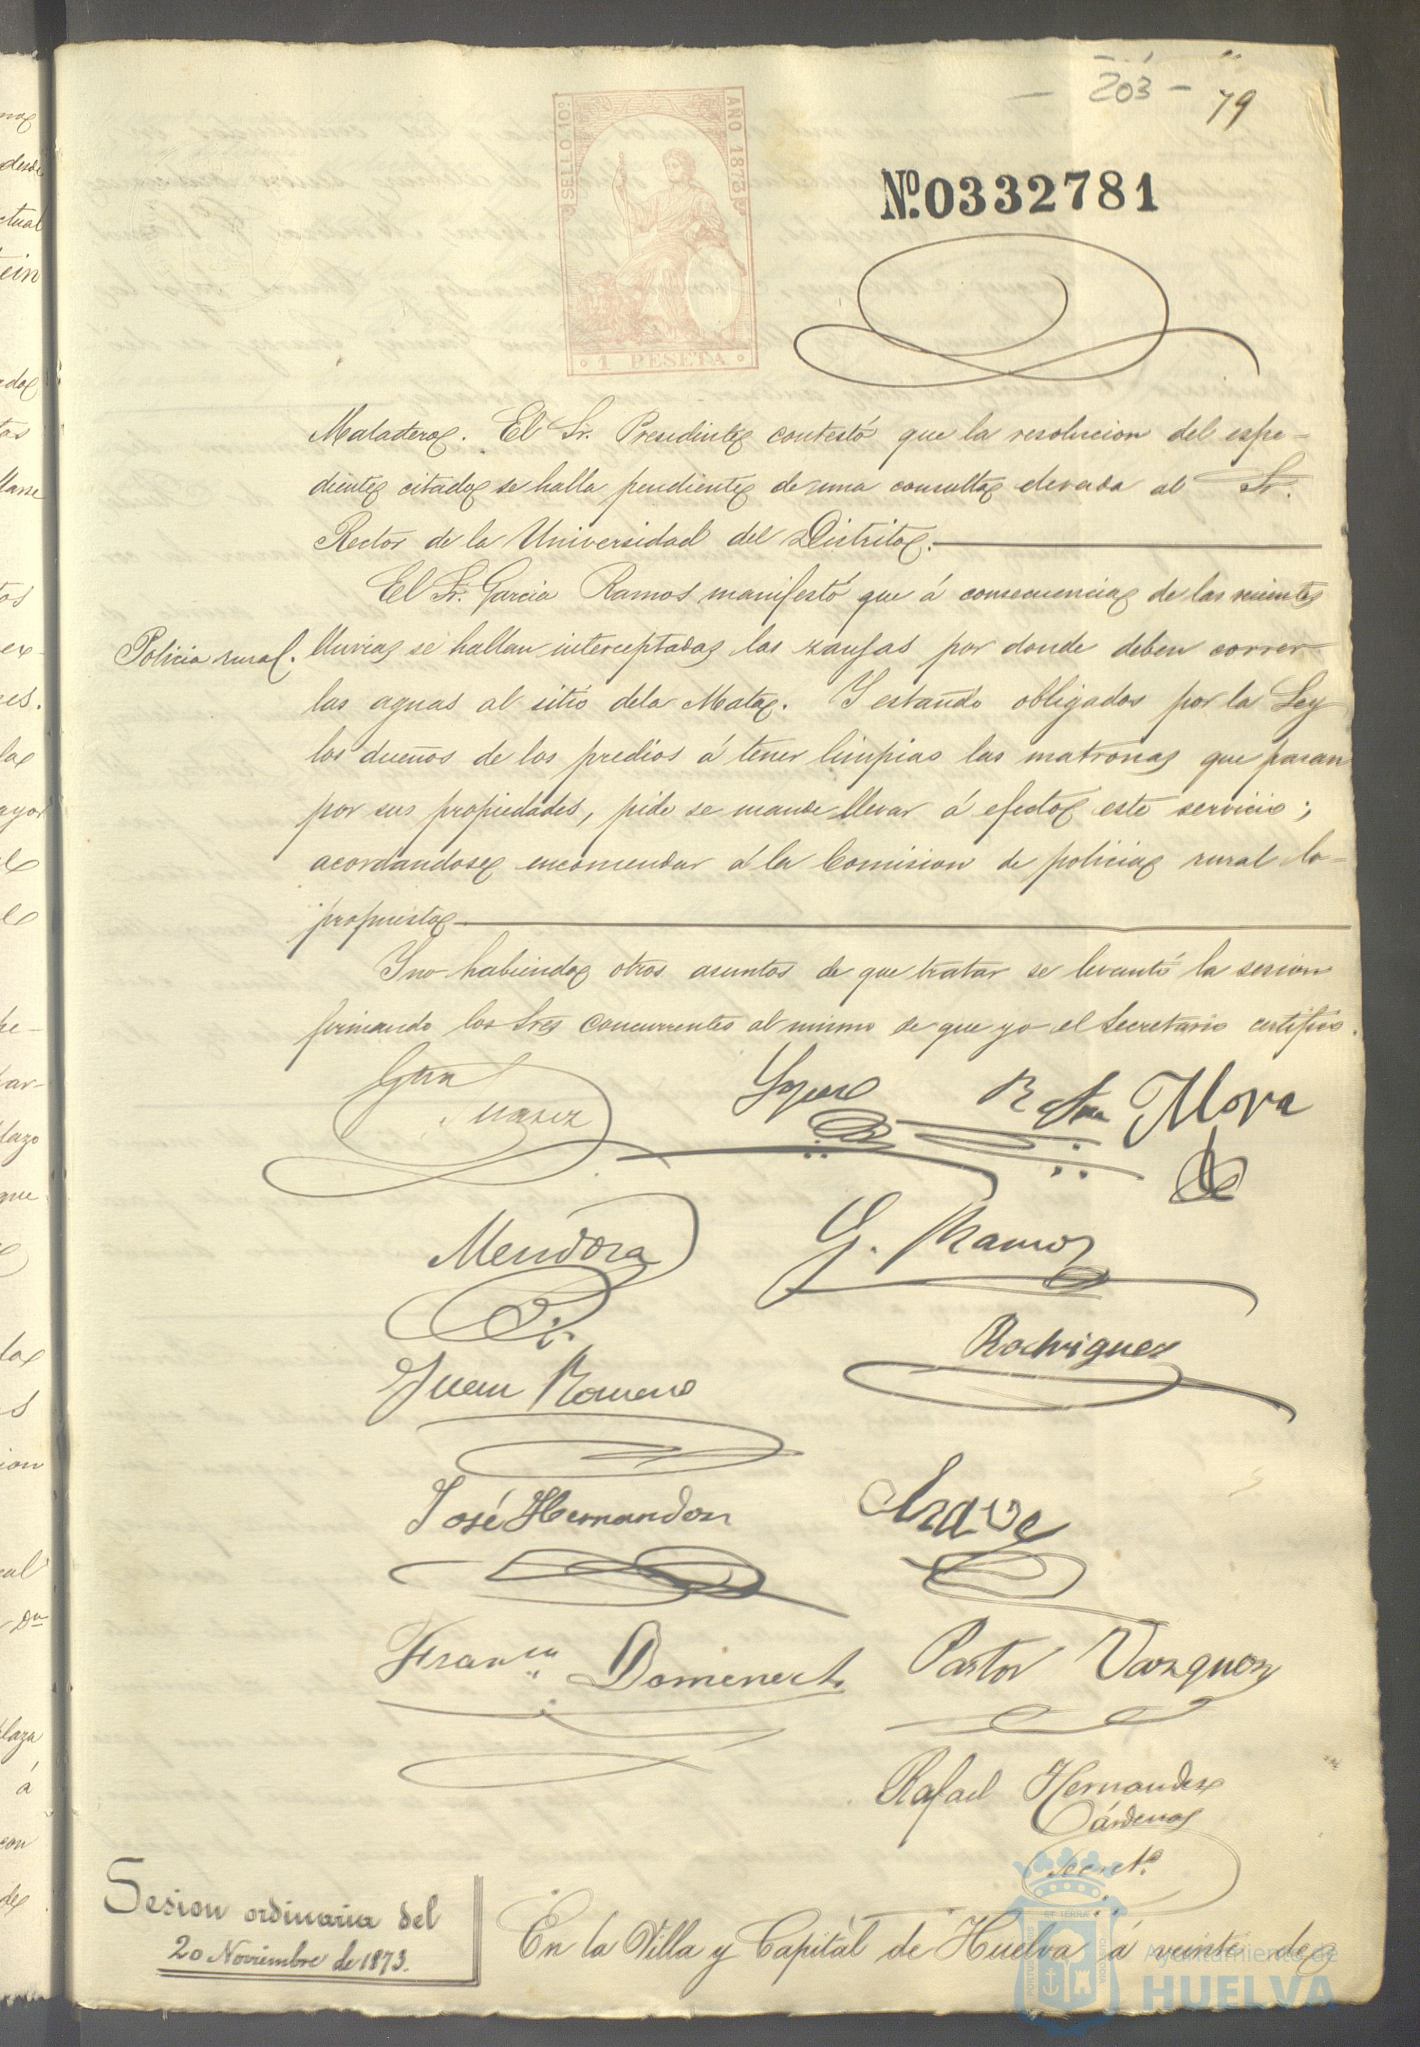 - 203 -
79
SELLO 10º
AÑO 1873
1 PESETA
Nº 0332781
Matadero. El Sr. Presidente contestó que la resolucion del espe-
diente citado se halla pendiente de una consulta elevada al Sr.
Rector de la Universidad del Distrito.
El Sr. Garcia Ramos manifestó que á consecuencia de las recientes
Policia rural.
lluvias se hallan interceptadas las zanjas por donde deben correr
las aguas al sitio dela Mata. Y estando obligados por la Ley
los dueños de los predios á tener limpias las matronas que pasan
por sus propiedades, pide se mande llevar á efecto este servicio;
acordandose encomendar á la Comision de policia rural lo
propuesto
Y no habiendo otros asuntos de que tratar se levantó la sesion
firmando los Sres concurrentes al mismo de que yo el Secretario certifico.
Mora
Mendoza
G. Ramos
Rodriguez
Juan Romero
José Hernandez
Franco Domenech
Pastor Vazquez
Rafael Hernandez
Cárdenas
Secretº
Sesion ordinaria del
20 Noviembre de 1873.
En la Villa y Capital de Huelva á veinte de
Ayuntamiento de
HUELVA